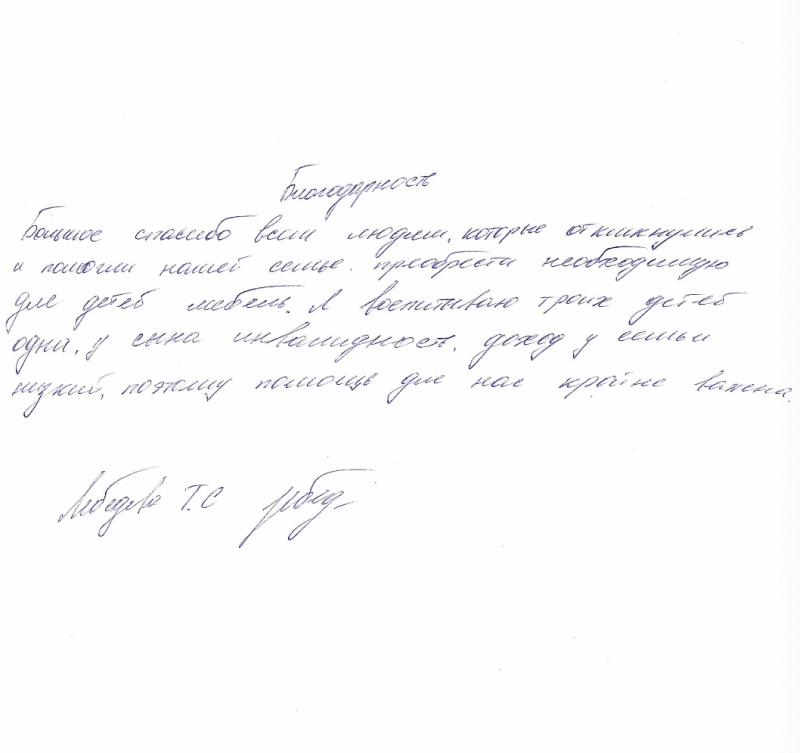 Благодарность
Большое спасибо всем людям, которые откликнулись
и помогли нашей семье. преобрести необходимую
для детей мебель. Я воспитываю троих детей
одна, у сына инвалидность, доход у семьи
низкий, поэтому помощь для нас крайне важена.
Лебедева Т.С